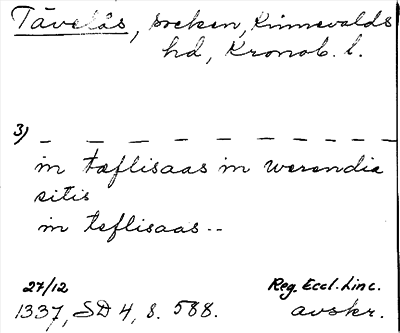 Tävelås, socken, Kinnevalds
hd, Kronob. l.
3) — — — — — — — — — — — —
in tæflisaas in werendia
sitis
in teflisaas --
27/12 Reg. Eccl. Linc.
1337, SD 4, s. 588. avskr.